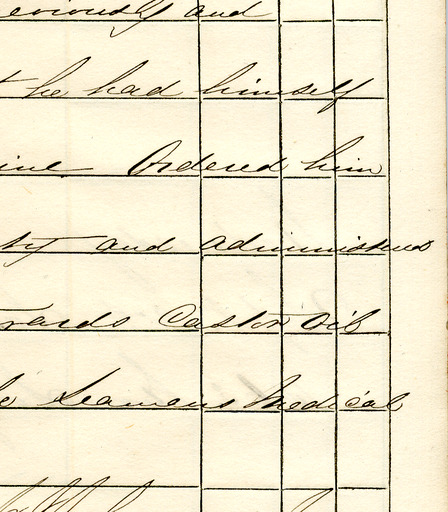 eviously and
t he had himself
ine Ordered him
ty and administered
wards Castor Oil
e Seamens Medical